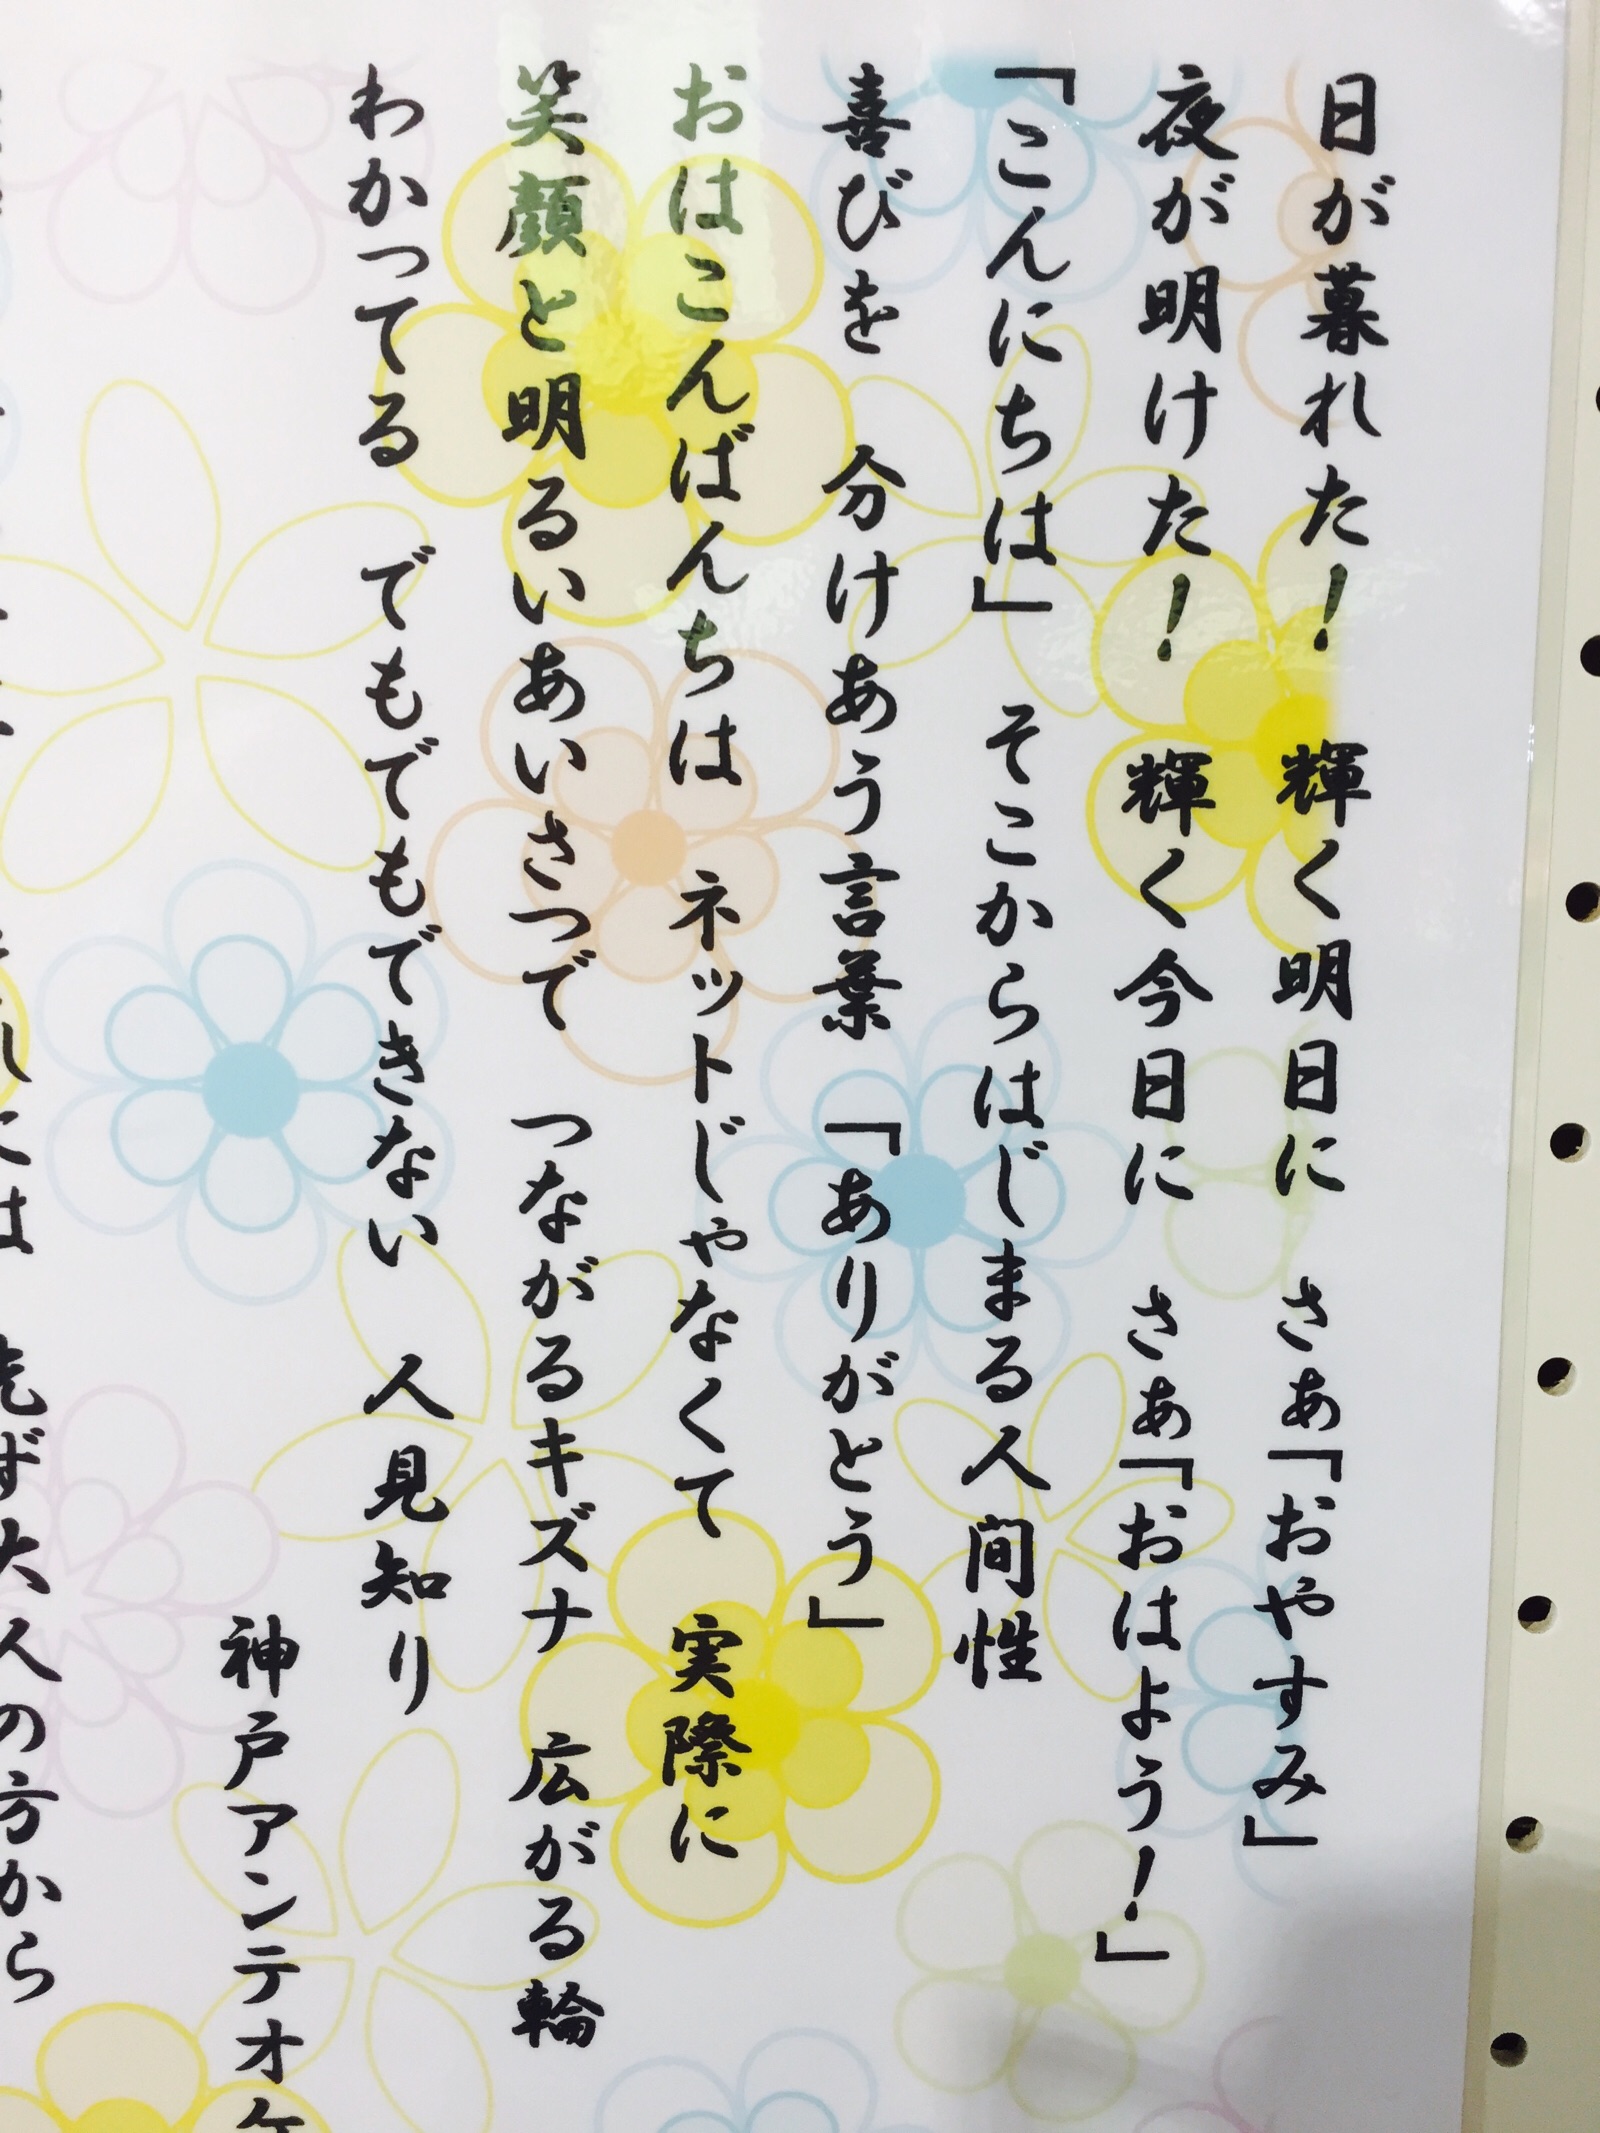 日が暮れた！　輝く明日に　さぁ「おやすみ」
夜が明けた！　輝く今日に　さぁ「おはよう！」
「こんにちは」　そこからはじまる人間性
喜びを　分けあう言葉　「ありがとう」
おはこんばんちは　ネットじゃなくて　実際に
笑顔と明るいあいさつで　つながるキズナ　広がる輪
わかってる　でもででもできない　人見知り
神戸アンテオケ
には　先ず大人の方から